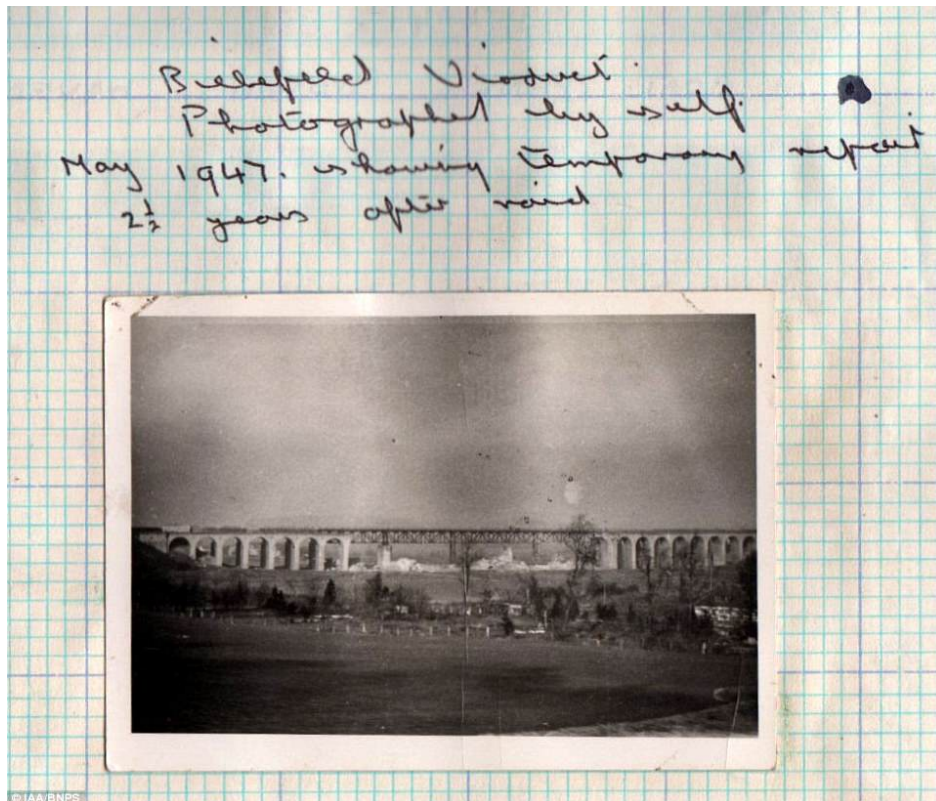 Bielefeld Viaduct.
Photographed by self.
May 1947. showing temporary repair
2½ years after raid
© IAA/BNPS